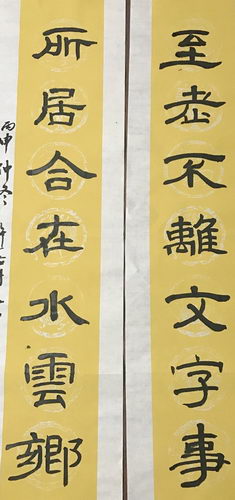 至老不離文字事
所居合在水雲鄉
丙申仲冬